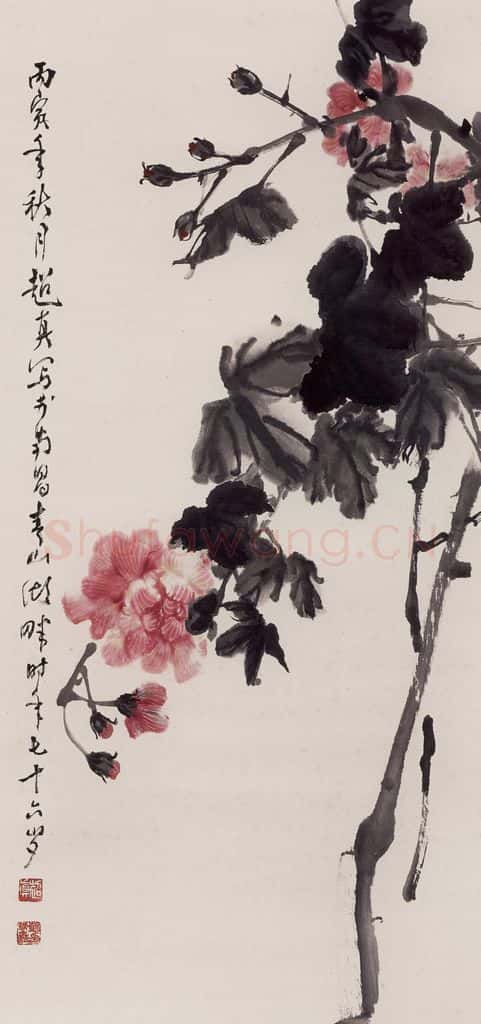 丙寅年秋月超真写于南昌青山湖畔时年七十六岁
Shufawang.CN